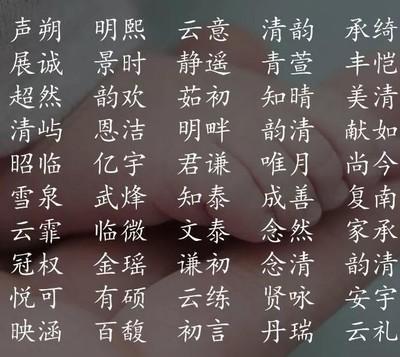 声朔 明熙 云意 清韵 承绮
展诚 景时 静遥 青萱 丰恺
超然 韵欢 茹初 知晴 美清
清屿 恩洁 明畔 韵清 献如
昭临 亿宇 君谦 唯月 尚今
雪泉 武烽 知泰 成善 复南
云霏 临微 文泰 念然 家承
冠权 金瑶 谦初 念清 韵清
悦可 有硕 云练 贤咏 安宇
映涵 百馥 初言 丹瑞 云礼